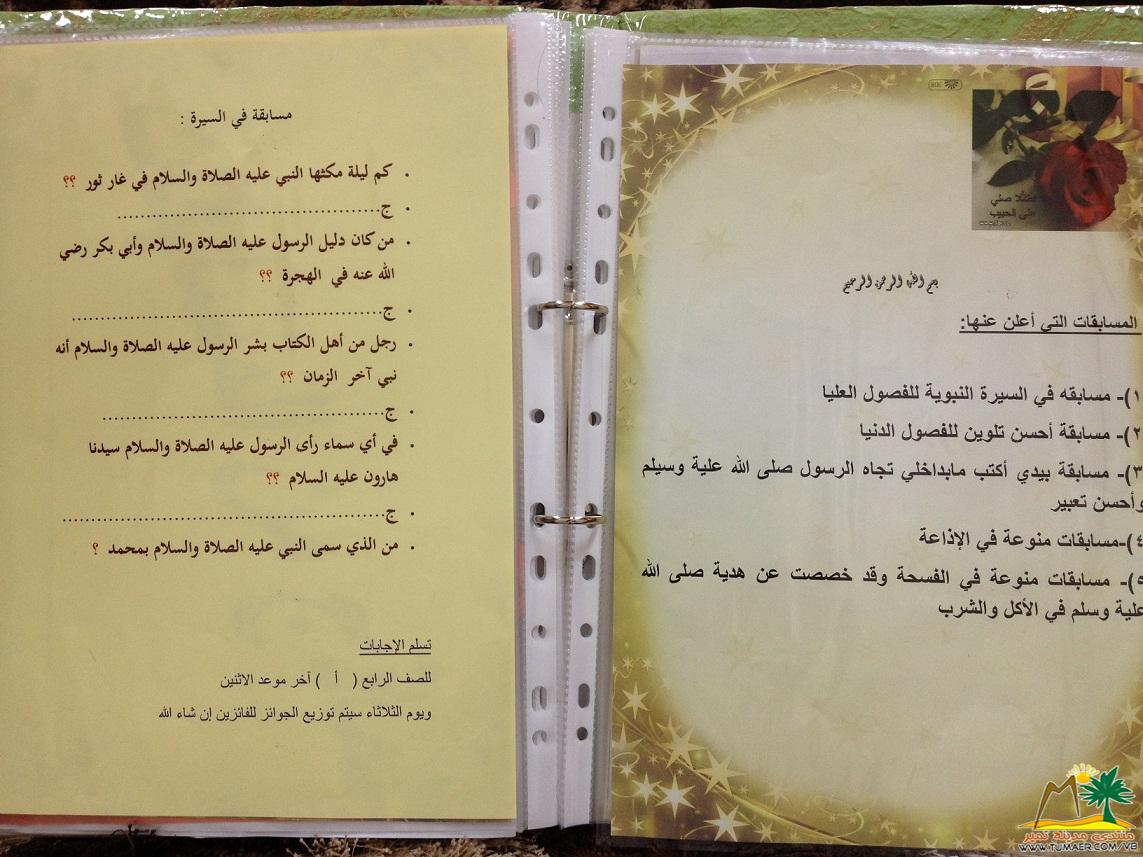 مسابقة في السيرة :
. كم ليلة مكثها النبي عليه الصلاة والسلام في غار ثور ؟؟
. ج............................................
. من كان دليل الرسول عليه الصلاة والسلام وأبي بكر رضي
الله عنه في الهجرة ؟؟
. ج....................................................
. رجل من أهل الكتاب بشر الرسول عليه الصلاة والسلام أنه
نبي آخر الزمان ؟؟
. ج...............................................
. في أي سماء رأى الرسول عليه الصلاة والسلام سيدنا
هارون عليه السلام ؟؟
. ج......................................................
. من الذي سمى النبي عليه الصلاة والسلام بمحمد ؟
تسلم الإجابات
للصف الرابع ( أ ) آخر موعد الاثنين
ويوم الثلاثاء سيتم توزيع الجوائز للفائزين إن شاء الله
صلي
على الحبيب
بسم الله الرحمن الرحيم
المسابقات التي أعلن عنها:
١)- مسابقه في السيرة النبوية للفصول العليا
٢)- مسابقة أحسن تلوين للفصول الدنيا
٣)- مسابقة بيدي أكتب مابداخلي تجاه الرسول صلى الله علية وسيلم
وأحسن تعبير
٤)-مسابقات منوعة في الإذاعة
٥)- مسابقات منوعة في الفسحة وقد خصصت عن هدية صلى الله
علية وسلم في الأكل والشرب
منتدى مدينة تمير
WWW.TUMAER.COM/VB